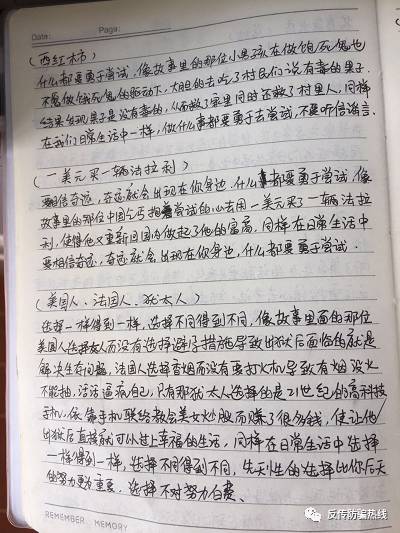 Date: Page:
(西红柿)
什么都要勇于尝试,像故事里的那位小男孩在做饱死鬼也
不愿做饿死鬼的驱动下,大胆的去吃了村民们说有毒的果子.
结果发现果子是没有毒的,从而救了家里同时还救了村里人,同样
在我们日常生活中一样,做什么事都要勇于去尝试,不要听信谣言.
(一美元买一辆法拉利)
要相信奇迹,奇迹就会出现在你身边.什么事都要勇于尝试,像
故事里的那位中国乞丐抱着尝试的心去用一美元买了一辆法拉
利,使得他又重新回国内做起了他的富商,同样在日常生活中
要相信奇迹,奇迹就会出现在你身边,什么都要勇于尝试.
(美国人、法国人、犹太人)
选择一样得到一样,选择不同得到不同,像故事里面的那位
美国人选择女人而没有选择避孕措施导致出狱后面临的就是
解决生存问题,法国人选择香烟而没有要打火机导致有烟没火
不能抽,活活逼疯自己,只有那犹太人选择的是21世纪的高科技
手机,依靠手机联络教会美女炒股而赚了很多钱,使让他
出狱后直接就可以过上幸福的生活,同样在日常生活中选择
一样得到一样,选择不同得到不同,先天性的选择比你后天
的努力更为重要,选择不对努力白费.
REMEMBER MEMORY
反传防骗热线